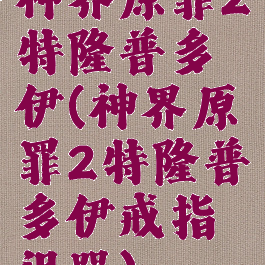 神界原罪2
特隆普多
伊(神界原
罪2特隆普
多伊戒指